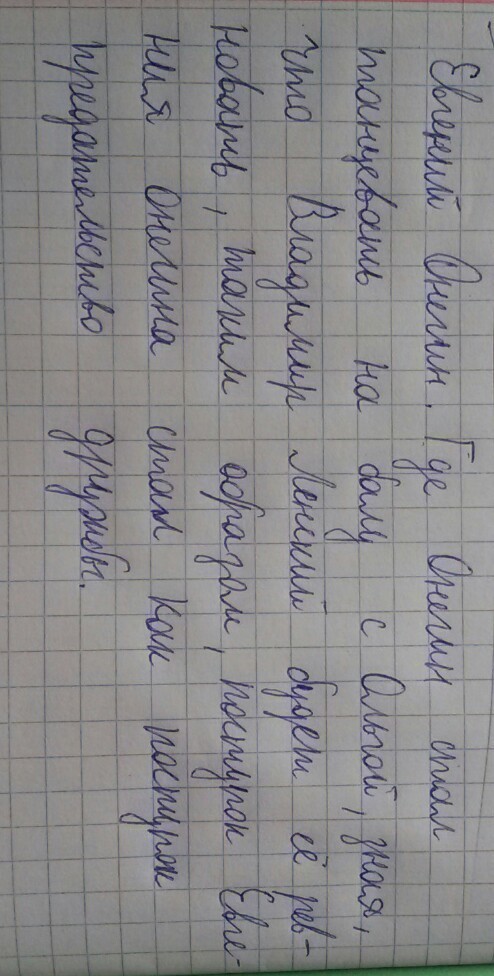 Евгений Онегин. Где Онегин стал
танцевать на балу с Ольгой, зная,
что Владимир Ленский будет её рев-
новать, таким образом, поступок Евге-
ния Онегина стал как поступок
предательство дружбы.